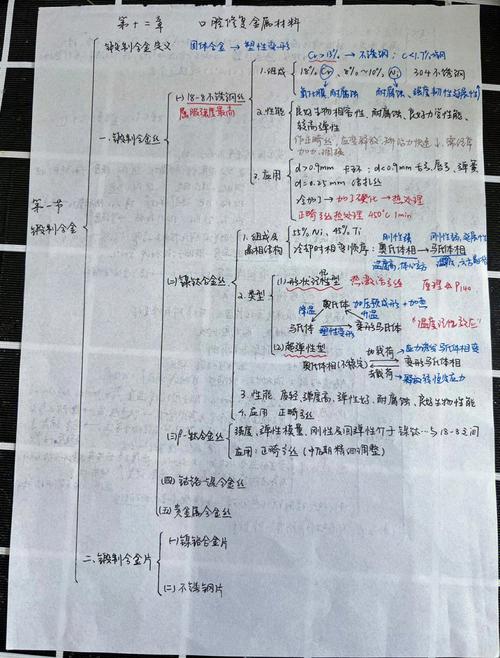 第十二章 口腔修复金属材料
锻制合金定义 固体合金 → 塑性变形
Cr>13% → 不锈钢; C<1.7% 钢
第一节 锻制合金
一.锻制合金丝
(一) 18-8不锈钢丝
屈服强度最高
1.组成
18% Cr, 8%~10% Ni 304不锈钢
氧化膜耐腐蚀 耐腐蚀、强度韧性
2.性能
良好生物相容性、耐腐蚀、良好力学性能、
较高弹性
作正畸丝,
3.应用
d>0.9mm 卡环; d<0.9mm
d=0.25mm 结扎丝
冷加工→加工硬化→热处理
正畸丝热处理 450℃ 1min
(二)镍钛合金丝
1.组成及
晶相结构
55% Ni、45% Ti
刚性强
冷却时相变顺序: 奥氏体相→马氏体相
2.类型
(1)形状记忆型 热激活弓丝 原理 P140
奥氏体 加压致成形+加查
降温 升温
马氏体 塑性变形 变形马氏体
"温度记忆效应"
(2)超弹性型
奥氏体相(不稳定) 加载荷→应力诱导马氏体相变
变形马氏体
去载荷→释放轻恒定应力
3.性能 质轻、强度高,弹性好、耐腐蚀、良好生物性能
4.应用 正畸弓丝
(三)β-钛合金丝
强度、弹性模量、刚性及回弹性介于镍钛…与18-8之间
应用:正畸弓丝(中后期精细调整)
(四) 钴铬-镍合金丝
(五) 贵金属合金丝
二.锻制合金片
(一)镍铬合金片
(二)不锈钢片